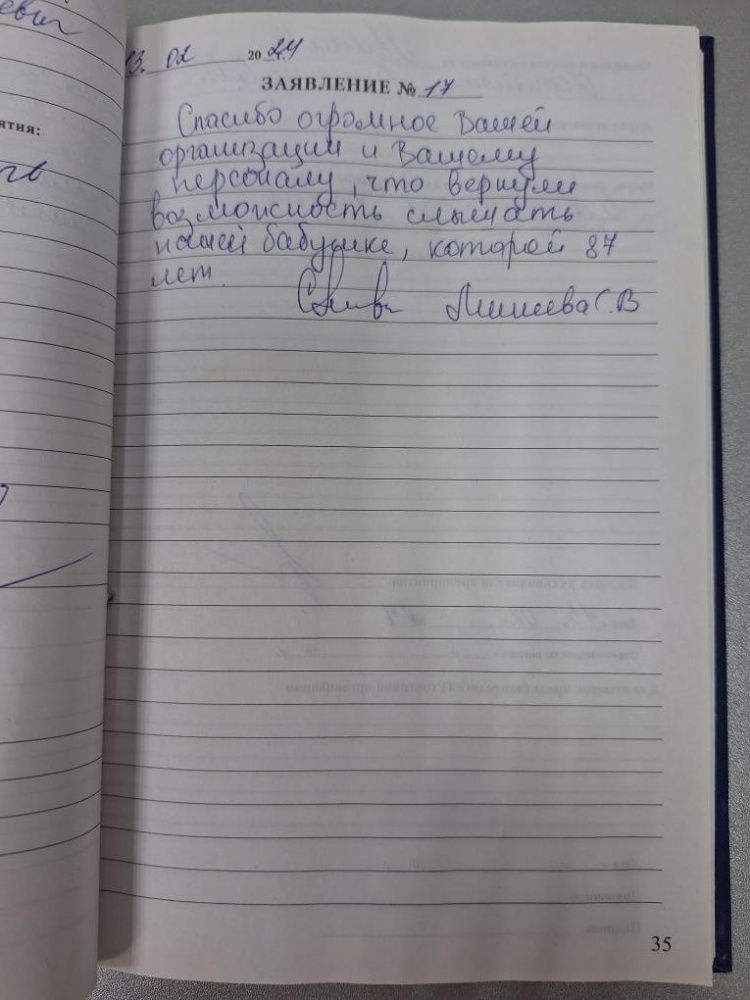 евич
ятия:
13. 02 2024
ЗАЯВЛЕНИЕ № 17
Спасибо огромное Вашей
организации и Вашему
персоналу, что вернули
возможность слышать
нашей бабушке, которой 87
лет.
С.В
35